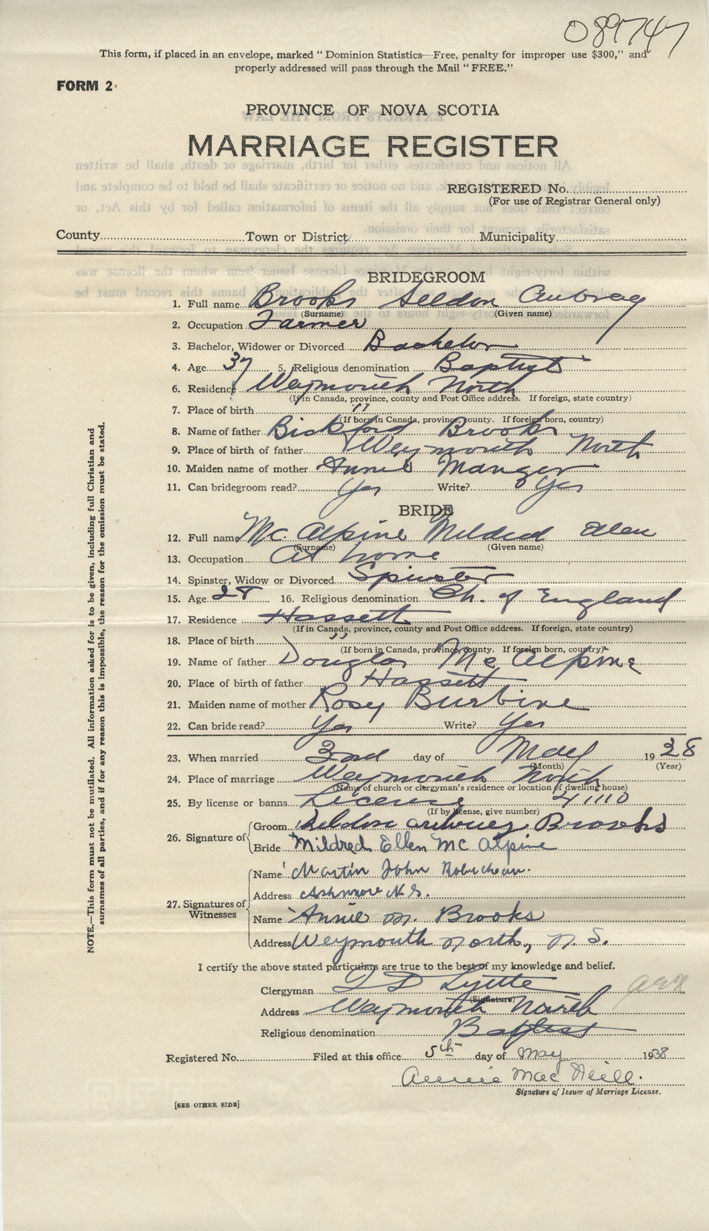 089747
This form, if placed in an envelope, marked "Dominion Statistics—Free, penalty for improper use $300," and
properly addressed will pass through the Mail "FREE."
FORM 2
PROVINCE OF NOVA SCOTIA
MARRIAGE REGISTER
REGISTERED No.
(For use of Registrar General only)
County Town or District Municipality
BRIDEGROOM
1. Full name Brooks Seldon Aubray
(Surname) (Given name)
2. Occupation Farmer
3. Bachelor, Widower or Divorced Bachelor
4. Age 37 5. Religious denomination Baptist
6. Residence Weymouth North
(If in Canada, province, county and Post Office address. If foreign, state country)
7. Place of birth " "
(If born in Canada, province, county. If foreign born, country)
8. Name of father Bickford Brooks
9. Place of birth of father Weymouth North
10. Maiden name of mother Annie Manger
11. Can bridegroom read? Yes Write? Yes
BRIDE
12. Full name McAlpine Mildred Ellen
(Surname) (Given name)
13. Occupation At home
14. Spinster, Widow or Divorced Spinster
15. Age 28 16. Religious denomination Ch. of England
17. Residence Hassett
(If in Canada, province, county and Post Office address. If foreign, state country)
18. Place of birth " "
(If born in Canada, province, county. If foreign born, country)
19. Name of father Douglas McAlpine
20. Place of birth of father Hassett
21. Maiden name of mother Rosey Burbine
22. Can bride read? Yes Write? Yes
23. When married 3rd day of May 1938
(Month) (Year)
24. Place of marriage Weymouth North
(Name of church or clergyman's residence or location of dwelling house)
25. By license or banns License 41110
(If by license, give number)
26. Signature of Groom Seldon Aubrey Brooks
Bride Mildred Ellen McAlpine
27. Signatures of Witnesses
Name Martin John Robicheau
Address Ashmore N.S.
Name Annie M. Brooks
Address Weymouth North, N.S.
I certify the above stated particulars are true to the best of my knowledge and belief.
Clergyman
(Signature)
Address Weymouth North
Religious denomination Baptist
Registered No. Filed at this office 5th day of May 1938
Annie MacNeill.
Signature of Issuer of Marriage License.
[SEE OTHER SIDE]
NOTE.—This form must not be mutilated. All information asked for is to be given, including full Christian and
surnames of all parties, and if for any reason this is impossible, the reason for the omission must be stated.